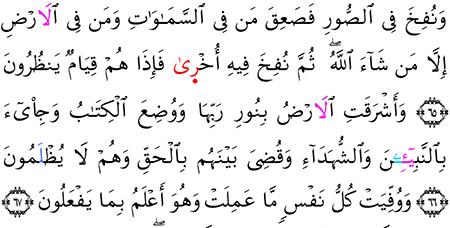 وَنُفِخَ فِى ٱلصُّورِ فَصَعِقَ مَن فِى ٱلسَّمَٰوَٰتِ وَمَن فِى ٱلَارْضِ
إِلَّا مَن شَآءَ ٱللَّهُ ۖ ثُمَّ نُفِخَ فِيهِ أُخْرِىٰ فَإِذَا هُمْ قِيَامٌ يَنظُرُونَ
٦٥ وَأَشْرَقَتِ ٱلَارْضُ بِنُورِ رَبِّهَا وَوُضِعَ ٱلْكِتَٰبُ وَجِاْىٓءَ
بِالنَّبِيٓـِٕينَ وَالشُّهَدَآءِ وَقُضِىَ بَيْنَهُم بِالْحَقِّ وَهُمْ لَا يُظْلَمُونَ
٦٦ وَوُفِّيَتْ كُلُّ نَفْسٍ مَّا عَمِلَتْ وَهُوَ أَعْلَمُ بِمَا يَفْعَلُونَ ٦٧